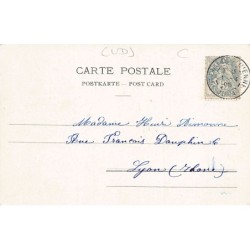 CARTE POSTALE
POSTKARTE - POST CARD
Madame Henri Simonne
Rue François Dauphin 6
Lyon (Rhône)